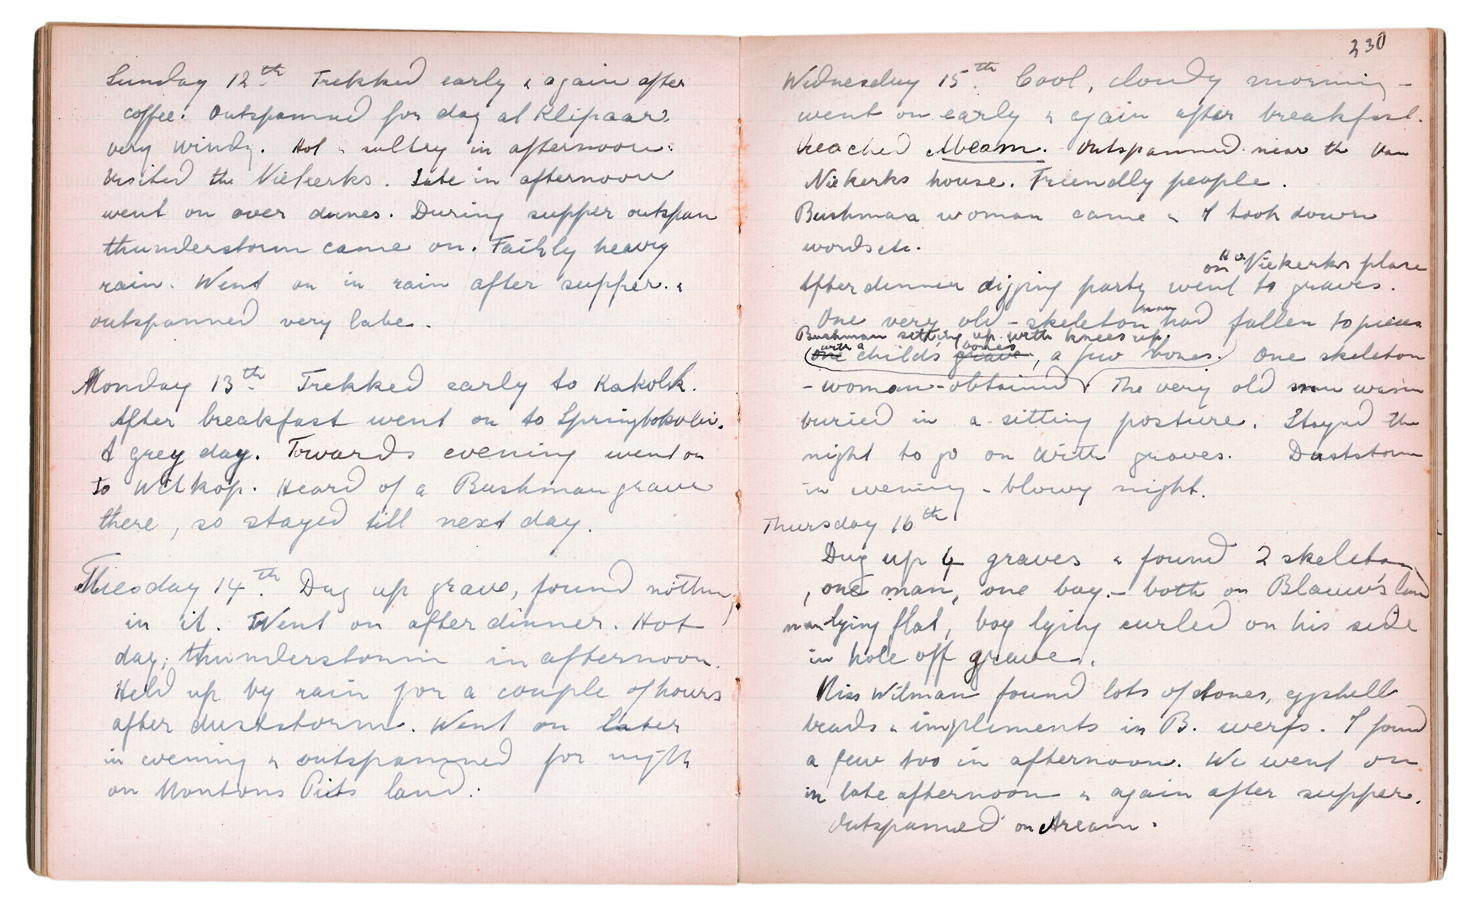 Sunday 12th Trekked early & again after
coffee. Outspanned for day at Klipaar.
very windy. Hot & sultry in afternoon.
Visited the Niekerks. Late in afternoon
went on over dunes. During supper outspan
thunderstorm came on. Fairly heavy
rain. Went on in rain after supper &
outspanned very late.
Monday 13th Trekked early to Kakolk.
After breakfast went on to Springbokvlei.
A grey day. Towards evening went on
to Witkop. Heard of a Bushman grave
there, so stayed till next day.
Tuesday 14th. Dug up grave, found nothing
in it. Went on after dinner. Hot
day, thunderstorm in afternoon.
Held up by rain for a couple of hours
after duststorm. Went on later
in evening & outspanned for night
on Montons Puts land.
330
Wednesday 15th Cool, cloudy morning -
went on early & again after breakfast.
Reached Abeam. Outspanned near the van
Niekerks house. Friendly people.
Bushman woman came & I took down
words etc.
on Niekerks place
After dinner digging party went to graves.
One very old - skeleton man had fallen to pieces
Bushman sitting up with knees up.
(one with a childs grave bones, a few bones.) One skeleton
- woman - obtained. The very old man was
buried in a sitting posture. Stayed the
night to go on with graves. Duststorm
in evening - blowy night.
Thursday 16th
Dug up 4 graves & found 2 skeletons
, one man, one boy - both on Blauw's land
man lying flat, boy lying curled on his side
in hole off grave.
Miss Wilman found lots of stones, eggshell
beads & implements in B. werfs. I found
a few too in afternoon. We went on
in late afternoon & again after supper.
Outspanned on